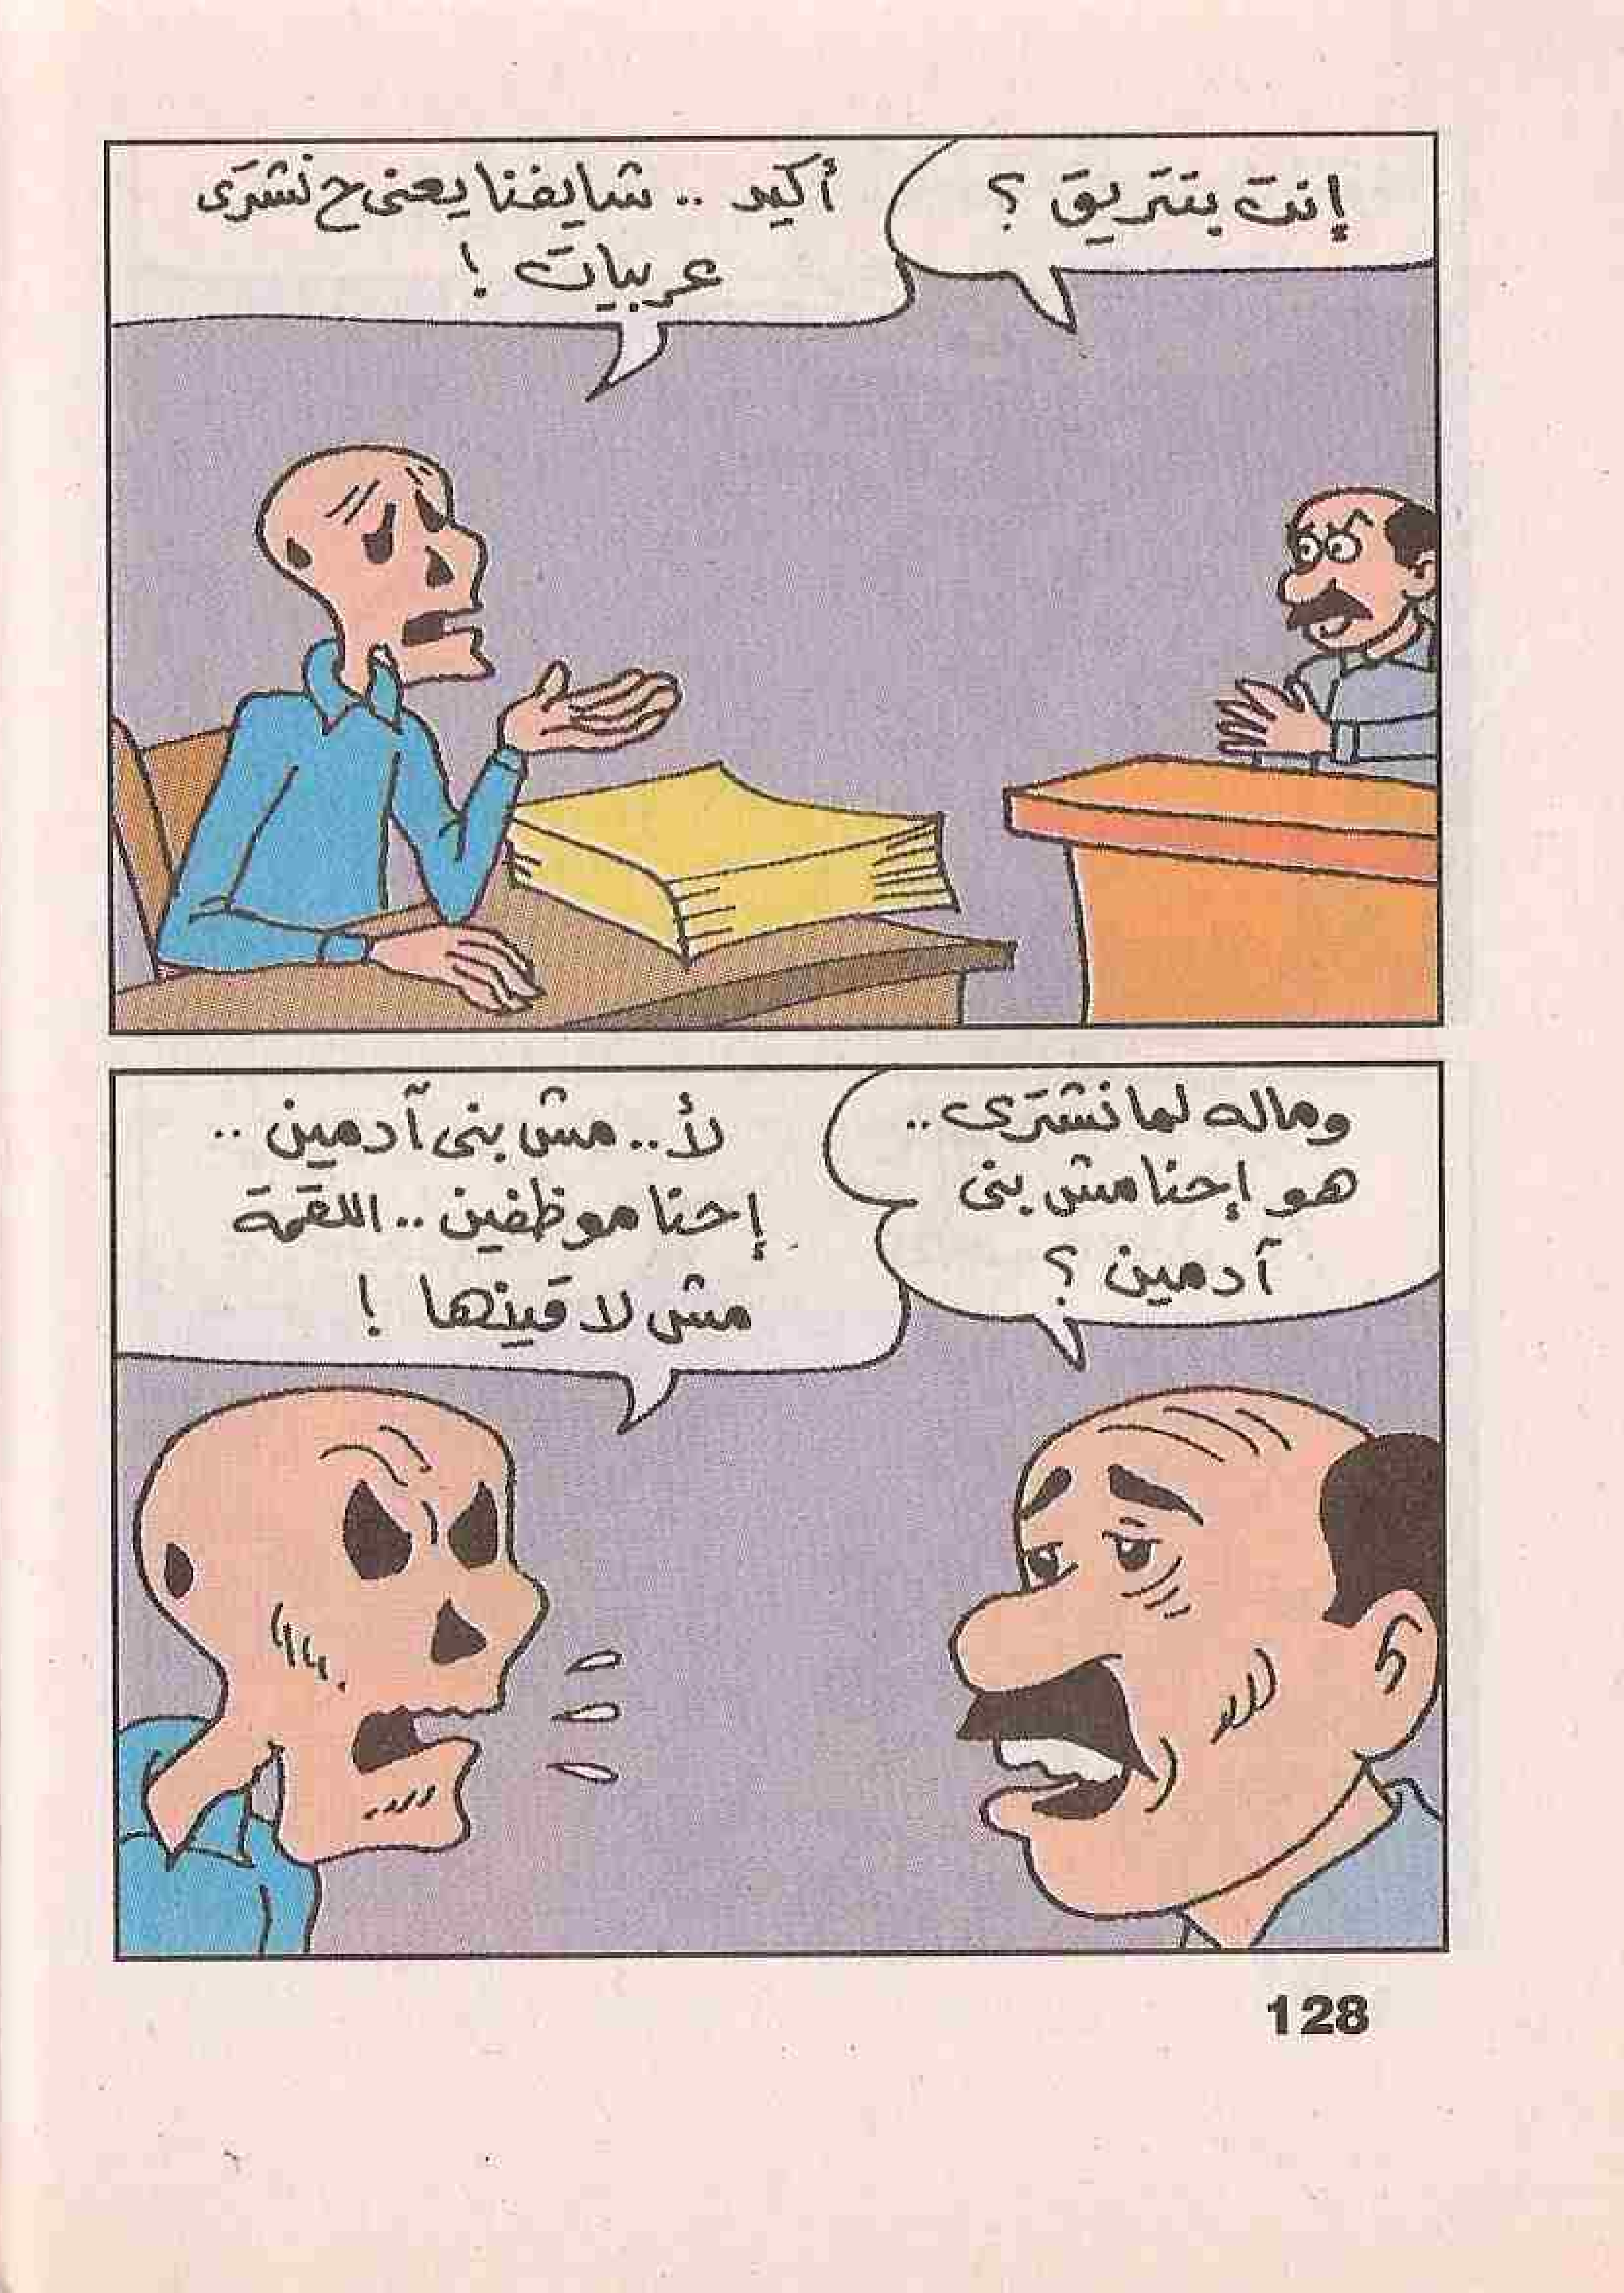 إنت بتتريق ؟
أكيد .. شايفنا يعنى ح نشترى
عربيات !
وماله لما نشترى ..
هو إحنا مش بنى
آدمين ؟
لأ .. مش بنى آدمين ..
إحنا موظفين .. اللقمة
مش لاقينها !
128